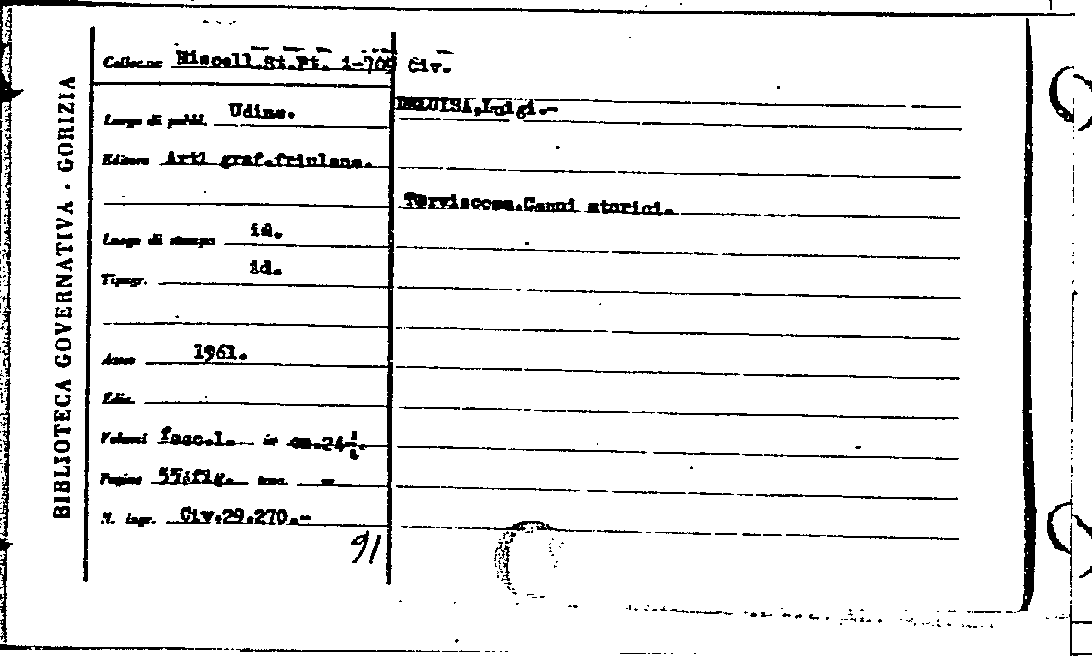 BIBLIOTECA GOVERNATIVA · GORIZIA
Collocaz. Miscell.St.Pt. i-709 Civ.
Luogo di pubbl. Udine.
Editore Arti graf.friulane.
Luogo di stampa id.
Tipogr. id.
Anno 1961.
Ediz.
Volumi fasc.1. in cm.24½.
Pagine 55;fig. tav. -
N. ingr. Civ.29.270.-
91
DELUISA,Luigi.-
Torviscosa.Cenni storici.